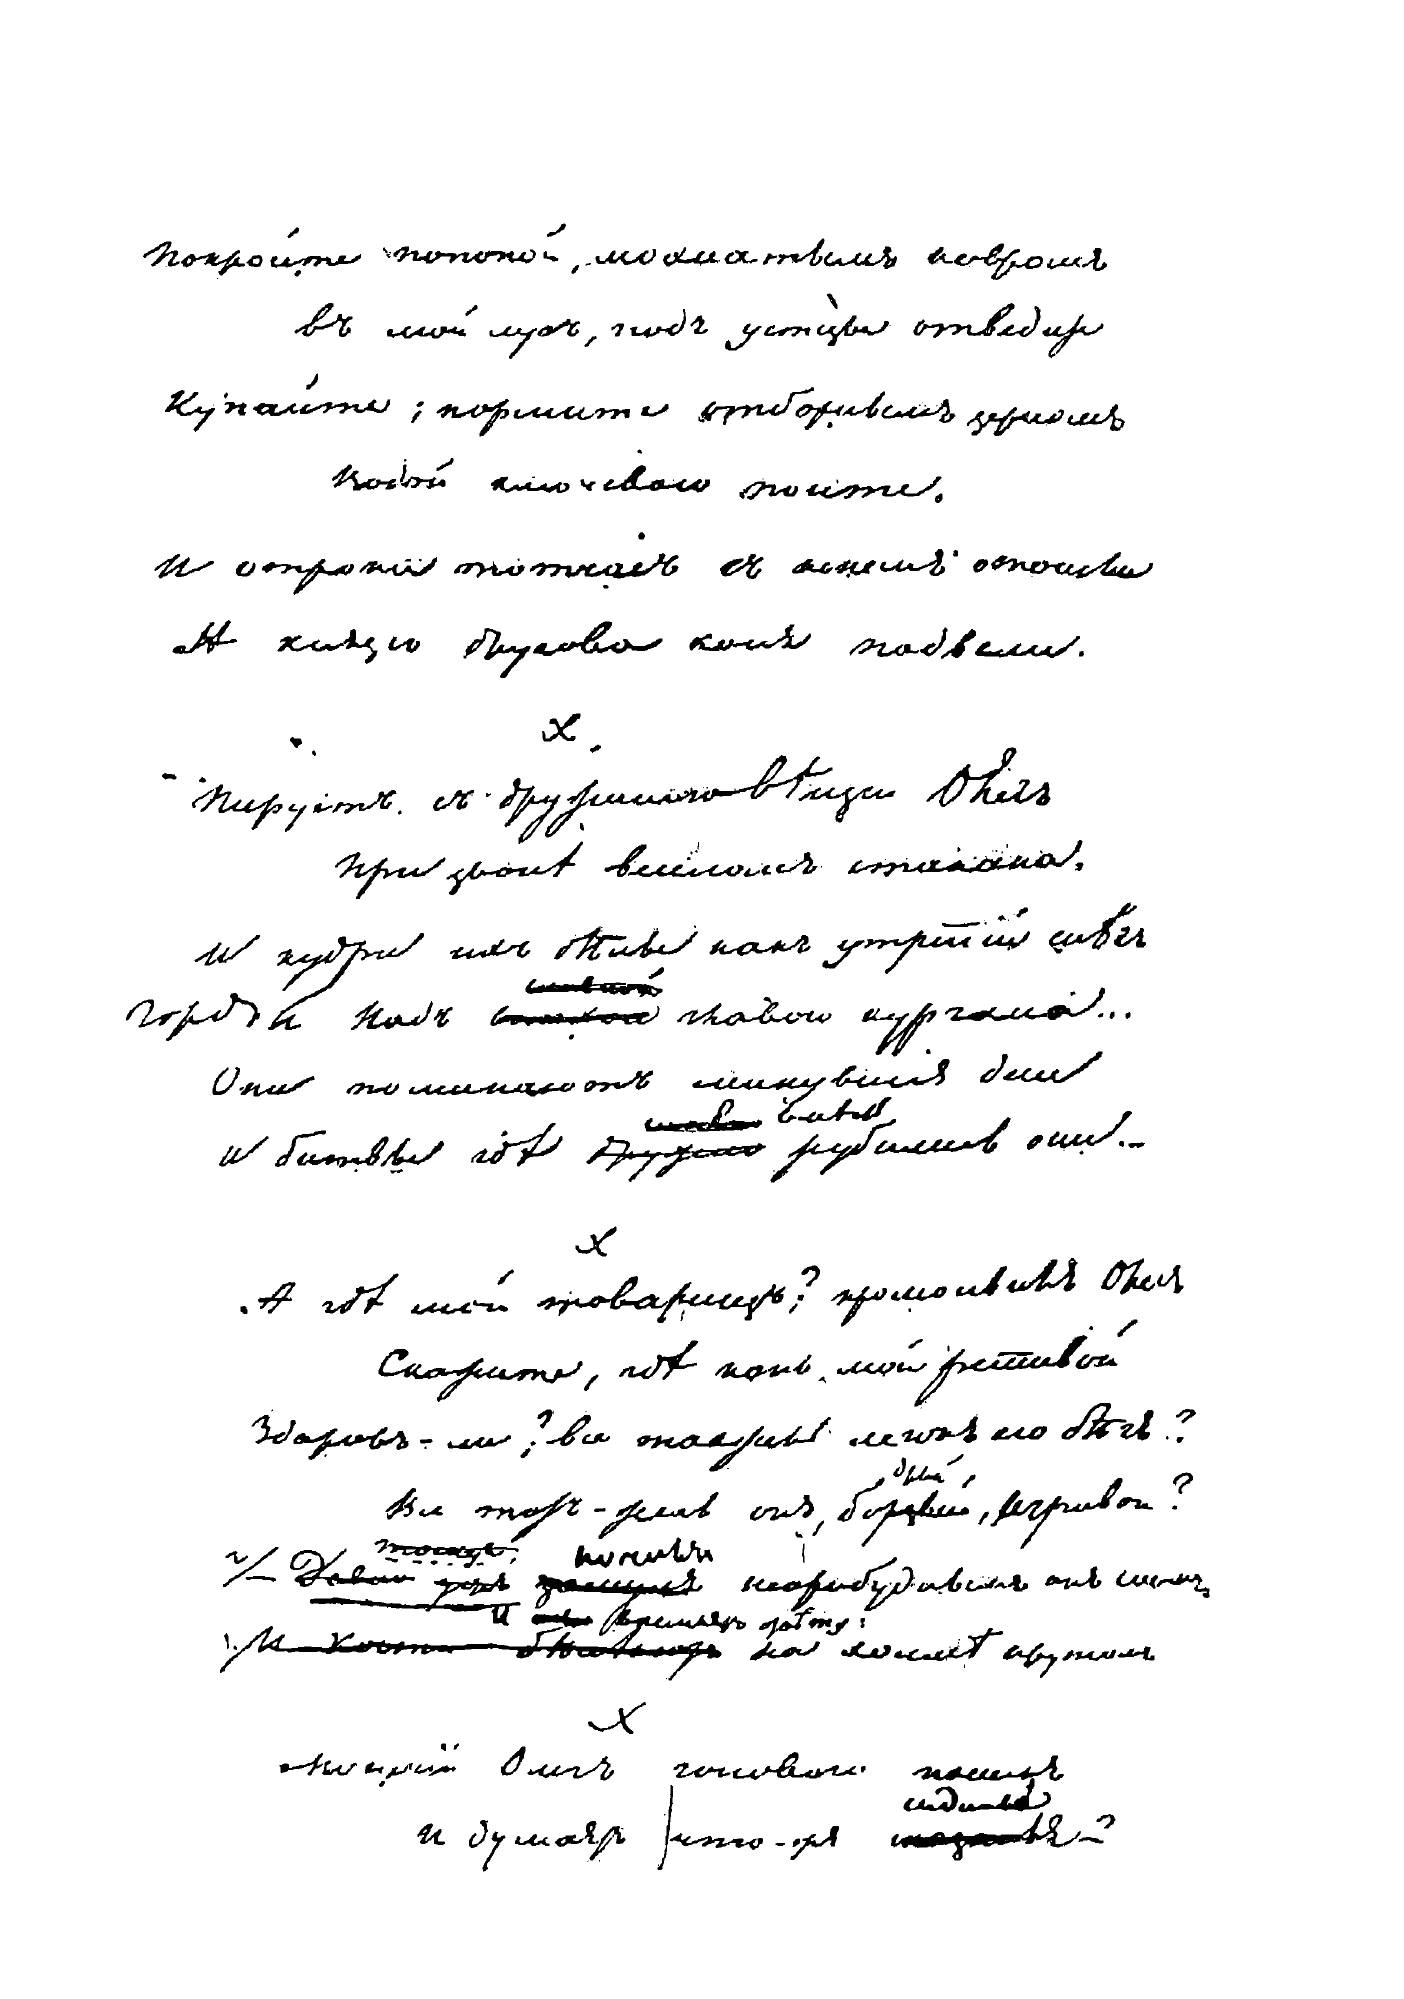 Покройте попоной, мохнатымъ ковромъ
Въ мой лугъ, подъ устцы отведите
Купайте; кормите отборнымъ зерномъ
Водой ключевою поите.
И отроки тотчасъ съ конемъ отошли
А князю другова коня подвели.
X
Пируетъ съ дружиною вѣщій Олегъ
При звонѣ веселомъ стакана.
И кудри ихъ бѣлы какъ утрений снѣгъ
Надъ главою кургана...
Они поминаютъ минувшія дни
И битвы гдѣ
вмѣстѣ
рубились они...
X
А гдѣ мой товарищъ? промолвилъ Олегъ
Скажите, гдѣ конь мой ретивой
Здоровъ-ли? все такъ-же легокъ его бѣгъ?
Все тотъ-же-ль онъ, игривой?
онъ сномъ
И
на холмѣ крутомъ
X
Могучій Олегъ головою поникъ
И думаетъ что-же